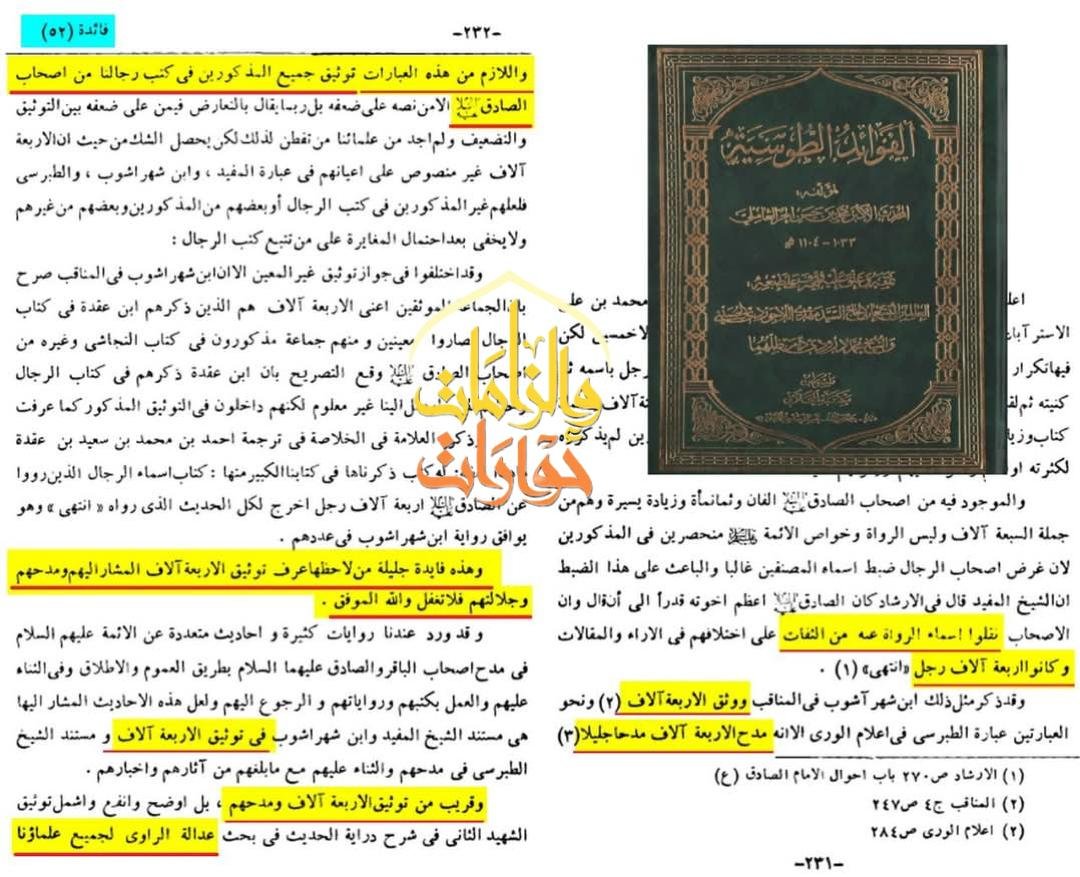 اعلم
محمد بن علـ
الاستر آباد
لاخمسين لكن
فيها تكرار
رجل باسمه ثـ
كنيته ثم لقـ
ثة آلاف
كتاب وزيا
ين لم يذكر
لكثرته او
والموجود فيه من اصحاب الصادق عليه السلام الفان وثمانمأة وزيادة يسيرة وهم من
جملة السبعة آلاف وليس الرواة وخواص الائمة عليهم السلام منحصرين فى المذكورين
لان غرض اصحاب الرجال ضبط اسماء المصنفين غالبا والباعث على هذا الضبط
ان الشيخ المفيد قال فى الارشاد كان الصادق عليه السلام اعظم اخوته قدراً الى أن قال وان
الاصحاب نقلوا اسماء الرواة عنه من الثقات على اختلافهم فى الاراء والمقالات
وكانوا اربعة آلاف رجل «انتهى» (١) .
وقد ذكر مثل ذلك ابن شهر آشوب فى المناقب ووثق الاربعة آلاف (٢) ونحو
العبارتين عبارة الطبرسى فى اعلام الورى الاانه مدح الاربعة آلاف مدحا جليلا (٣)
(١) الارشاد ص ٢٧٠ باب احوال الامام الصادق (ع)
(٢) المناقب ج٤ ص ٢٤٧
(٢) اعلام الورى ص ٢٨٤
-٢٣١-
الفوائد الطوسية
لمؤلفه:
المحدث الاكبر محمد بن حسن الحر العاملي
١٠٣٣ - ١١٠٤ هـ
-٢٣٢-
فائدة (٥٢)
واللازم من هذه العبارات توثيق جميع المذكورين فى كتب رجالنا من اصحاب
الصادق عليه السلام الامن نصه على ضعفه بل ربما يقال بالتعارض فيمن على ضعفه بين التوثيق
والتضعيف ولم اجد من علمائنا من تفطن لذلك لكن يحصل الشك من حيث ان الاربعة
آلاف غير منصوص على اعيانهم فى عبارة المفيد ، وابن شهر اشوب ، والطبرسى
فلعلهم غير المذكورين فى كتب الرجال أو بعضهم من المذكورين وبعضهم من غيرهم
ولا يخفى بعد احتمال المغايرة على من تتبع كتب الرجال :
وقد اختلفوا فى جواز توثيق غير المعين الا ان ابن شهر اشوب فى المناقب صرح
بان الجماعة الموثقين اعنى الاربعة آلاف هم الذين ذكرهم ابن عقدة فى كتاب
الرجال فصاروا معينين و منهم جماعة مذكورون فى كتاب النجاشى وغيره من
اصحاب الصادق عليه السلام وقع التصريح بان ابن عقدة ذكرهم فى كتاب الرجال
الينا غير معلوم لكنهم داخلون فى التوثيق المذكور كما عرفت
ذكر العلامة فى الخلاصة فى ترجمة احمد بن محمد بن سعيد بن عقدة
له كتب ذكرناها فى كتابنا الكبير منها : كتاب اسماء الرجال الذين رووا
عن الصادق عليه السلام اربعة آلاف رجل اخرج لكل الحديث الذى رواه « انتهى » وهو
يوافق رواية ابن شهر اشوب فى عددهم .
وهذه فايدة جليلة من لاحظها عرف توثيق الاربعة آلاف المشار اليهم ومدحهم
وجلالتهم فلا تغفل والله الموفق .
و قد ورد عندنا روايات كثيرة و احاديث متعددة عن الائمة عليهم السلام
فى مدح اصحاب الباقر والصادق عليهما السلام بطريق العموم والاطلاق وفى الثناء
عليهم والعمل بكتبهم ورواياتهم و الرجوع اليهم ولعل هذه الاحاديث المشار اليها
هى مستند الشيخ المفيد وابن شهر اشوب فى توثيق الاربعة آلاف و مستند الشيخ
الطبرسى فى مدحهم والثناء عليهم مع ما بلغهم من آثارهم واخبارهم .
وقريب من توثيق الاربعة آلاف ومدحهم ، بل اوضح وانفع واشمل توثيق
الشهيد الثانى فى شرح دراية الحديث فى بحث عدالة الراوى لجميع علماؤنا
والزامات
حوارات